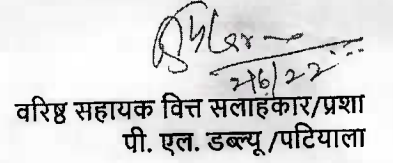 2/6/22
वरिष्ठ सहायक वित्त सलाहकार/प्रशा
पी. एल. डब्ल्यू /पटियाला